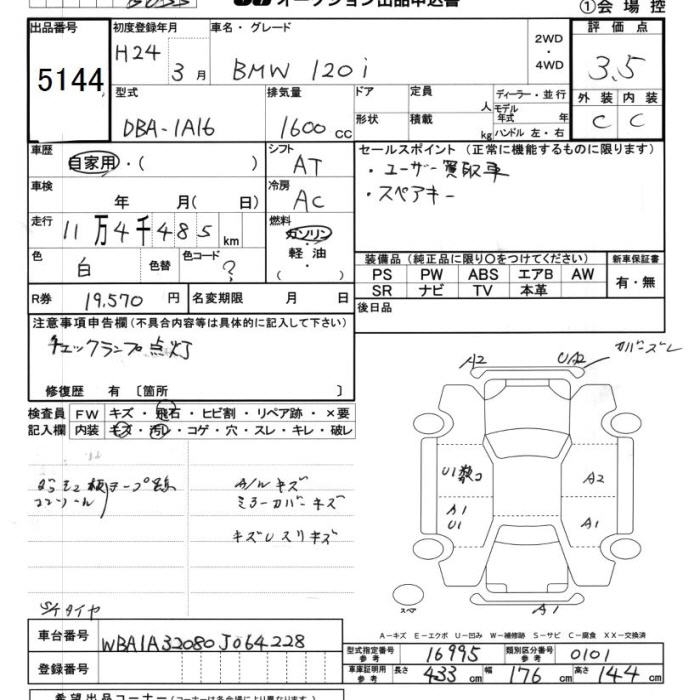 オークション出品申込書
①会場控
出品番号
5144
初度登録年月
H24 3月
車名・グレード
BMW 120i
2WD
・
4WD
評価点
3.5
外装 内装
C C
型式
DBA-1A16
排気量
1600 cc
ドア
形状
定員 人
積載 kg
ディーラー・並行
モデル年式 年
ハンドル 左・右
車歴
自家用・( )
シフト
AT
セールスポイント (正常に機能するものに限ります)
・ユーザー買取車
・スペアキー
車検
年 月( 日)
冷房
AC
走行
11万4千485km
燃料
ガソリン
・
軽油
・
( )
色
白
色替
色コード
?
装備品 (純正品に限り○をつけてください)
新車保証書
PS PW ABS エアB AW
SR ナビ TV 本革
有・無
R券 19,570 円
名変期限 月 日
後日品
注意事項申告欄(不具合内容等は具体的に記入して下さい)
チェックランプ点灯
修復歴 有 〔箇所 〕
検査員記入欄
FW キズ・飛石・ヒビ割・リペア跡・×要
内装 キズ・汚レ・コゲ・穴・スレ・キレ・破レ
A2 UA2 カバーズレ
A/W キズ
ミラーカバーキズ
キズUスリキズ
U1 A2
A1
U1
A1
S/タイヤ
スペア
A1
A-キズ E-エクボ U-凹み W-補修跡 S-サビ C-腐食 XX-交換済
車台番号
WBA1A32080J064228
型式指定番号 参考 16995
類別区分番号 参考 0101
車庫証明用 参考 長さ 433cm 幅 176cm 高さ 144cm
希望出品コーナー(コーナーは各会場により異なります)